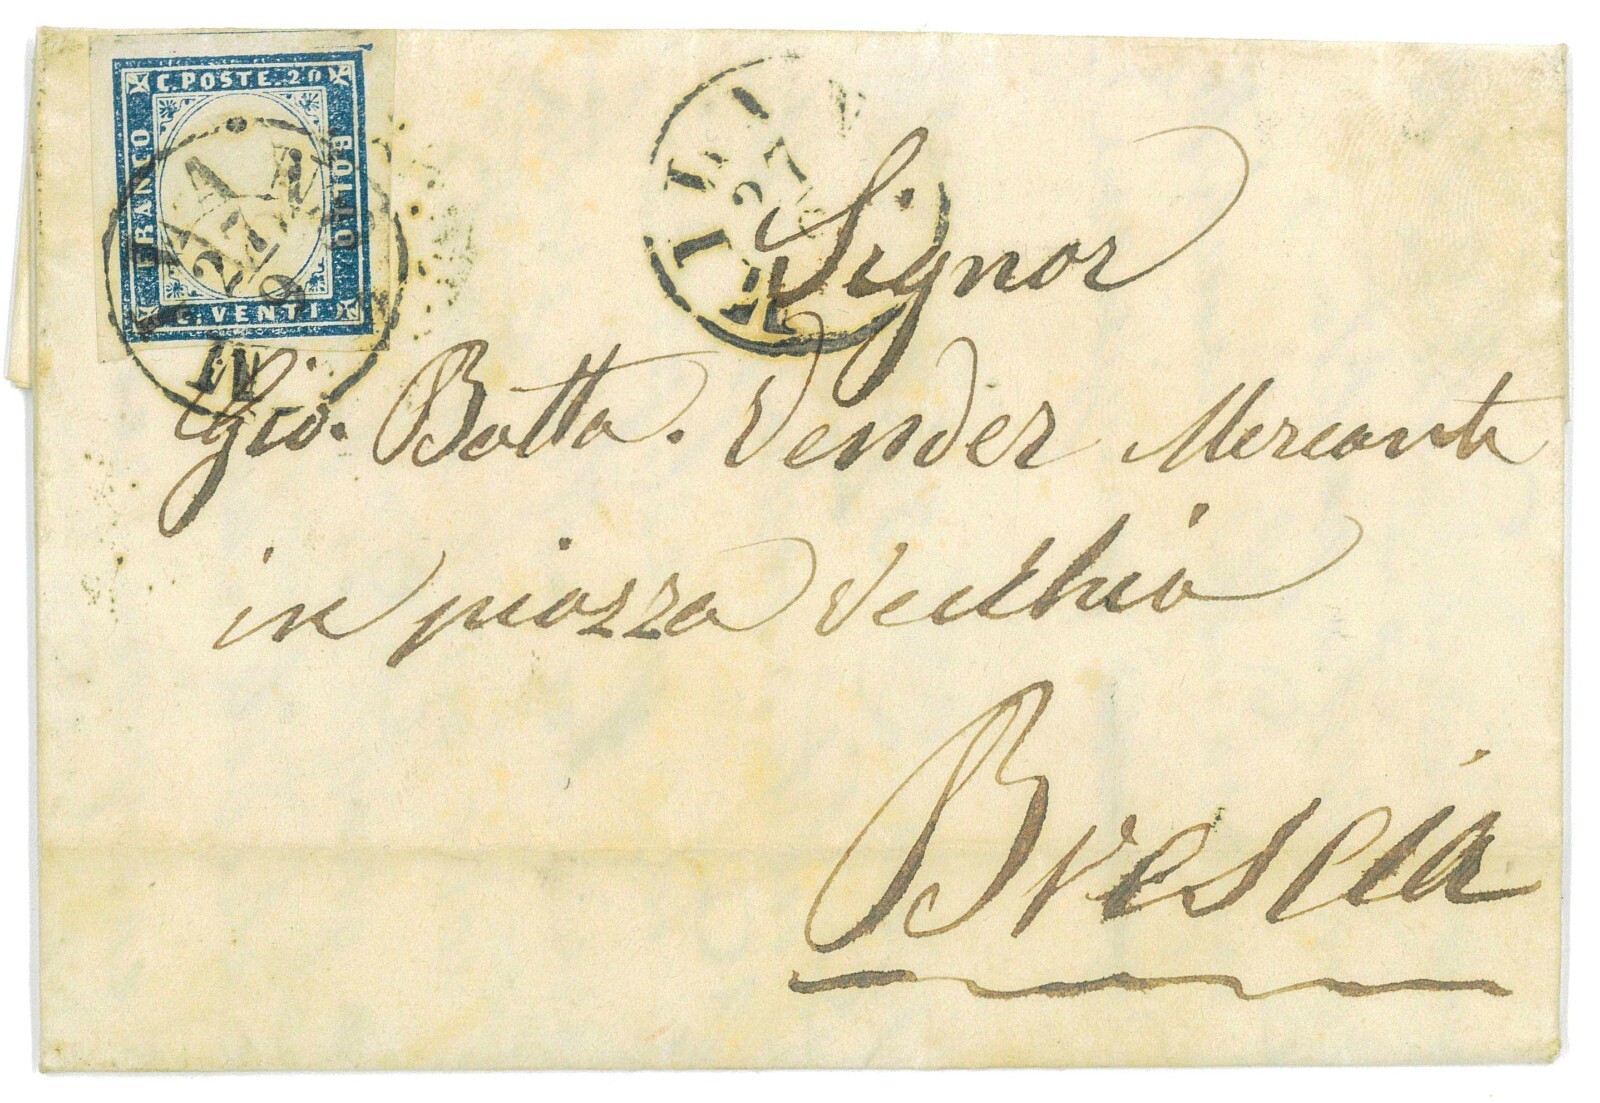 C. POSTE. 20
FRANCO
BOLLO
C. VENTI
27
9
MI
27
Signor
Gio. Batta. Vender Mercante
in piazza Vecchia
Brescia